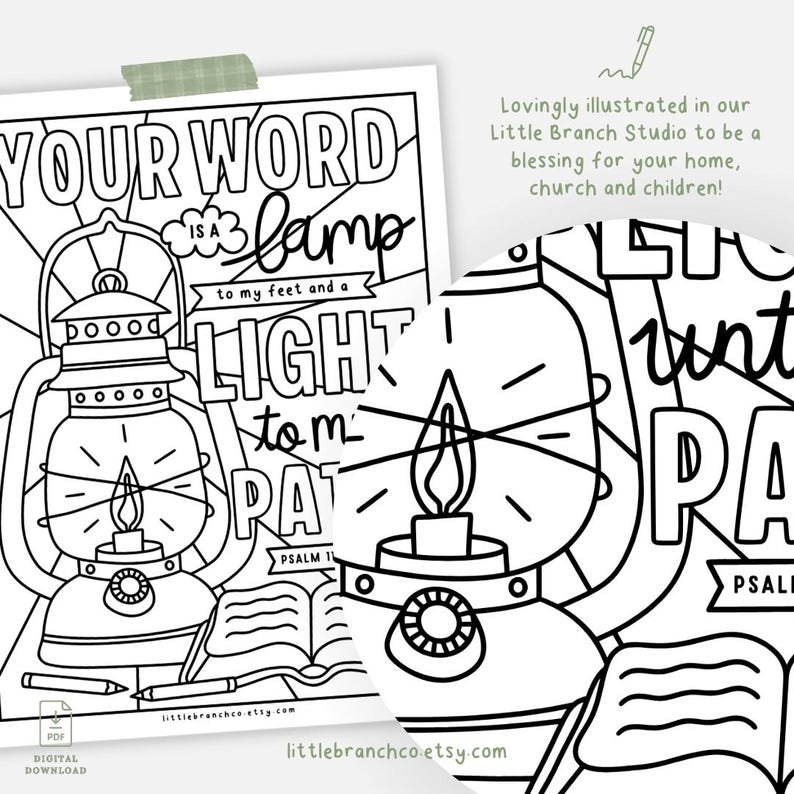 Lovingly illustrated in our
Little Branch Studio to be a
blessing for your home,
church and children!
YOUR WORD
IS A lamp
to my feet and a
LIGHT
to m
PAT
PSALM 11
littlebranchco.etsy.com
unt
PA
PSAL
PDF
DIGITAL
DOWNLOAD
littlebranchco.etsy.com